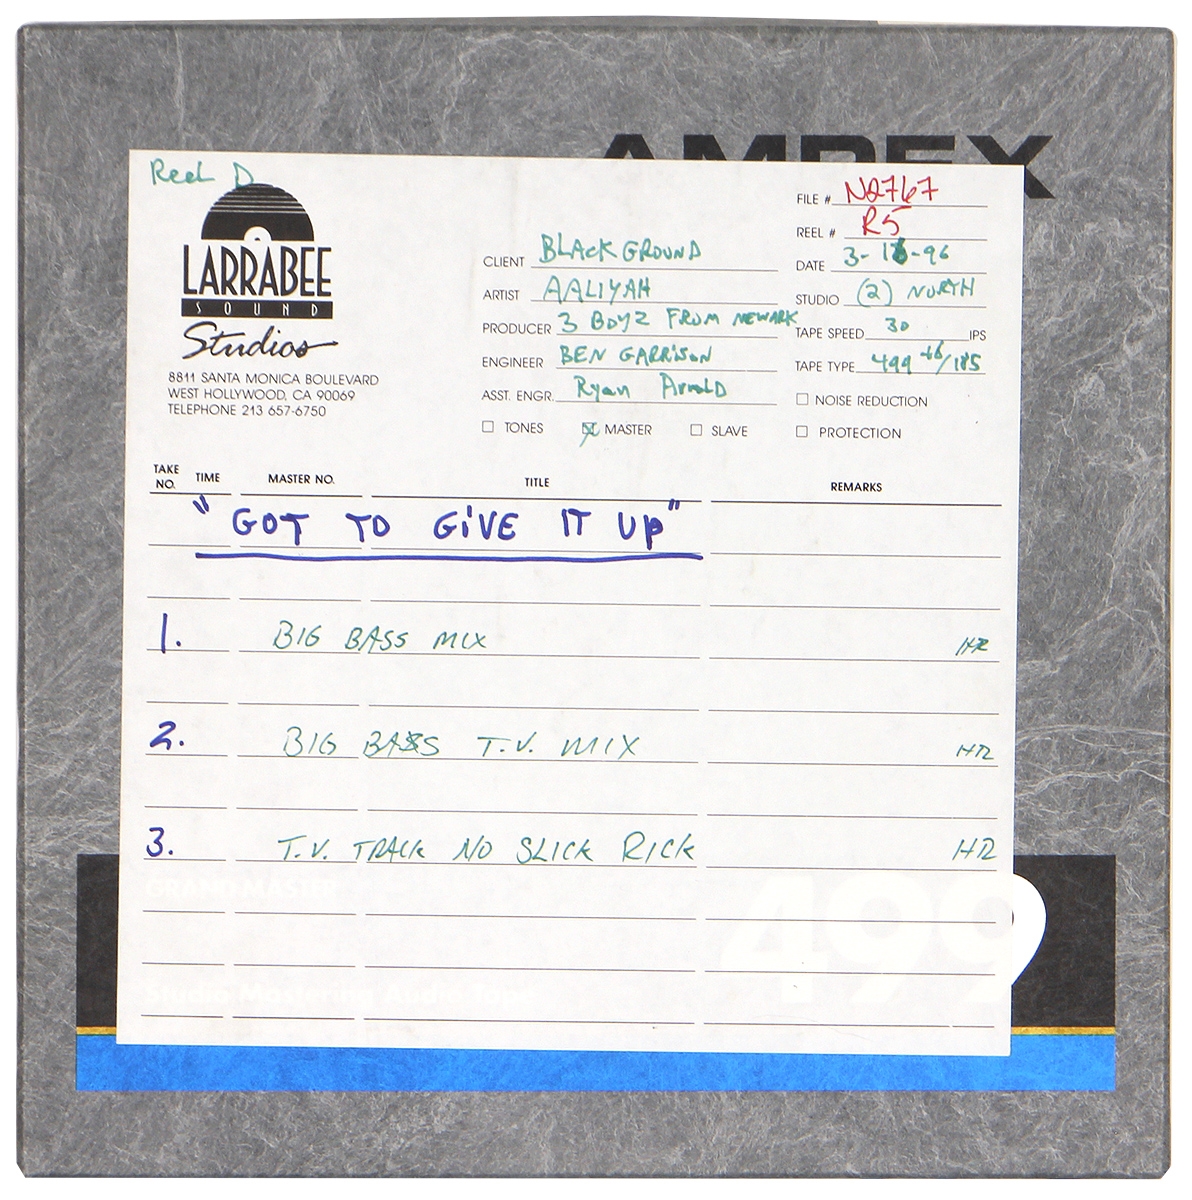 AMPEX
Reel D
LARRABEE
SOUND
Studios
8811 SANTA MONICA BOULEVARD
WEST HOLLYWOOD, CA 90069
TELEPHONE 213 657-6750
CLIENT BLACKGROUND
ARTIST AALIYAH
PRODUCER 3 BOYZ FROM NEWARK
ENGINEER BEN GARRISON
ASST. ENGR. Ryan Arnold
☐ TONES ☒ MASTER ☐ SLAVE
FILE # N2767
REEL # R5
DATE 3-18-96
STUDIO (2) NORTH
TAPE SPEED 30 IPS
TAPE TYPE 499 +6/185
☐ NOISE REDUCTION
☐ PROTECTION
TAKE NO. TIME MASTER NO. TITLE REMARKS
"GOT TO GIVE IT UP"
1. BIG BASS MIX HR
2. BIG BASS T.V. MIX HR
3. T.V. TRACK NO SLICK RICK HR
GRAND MASTER
499
Studio Mastering Audio Tape